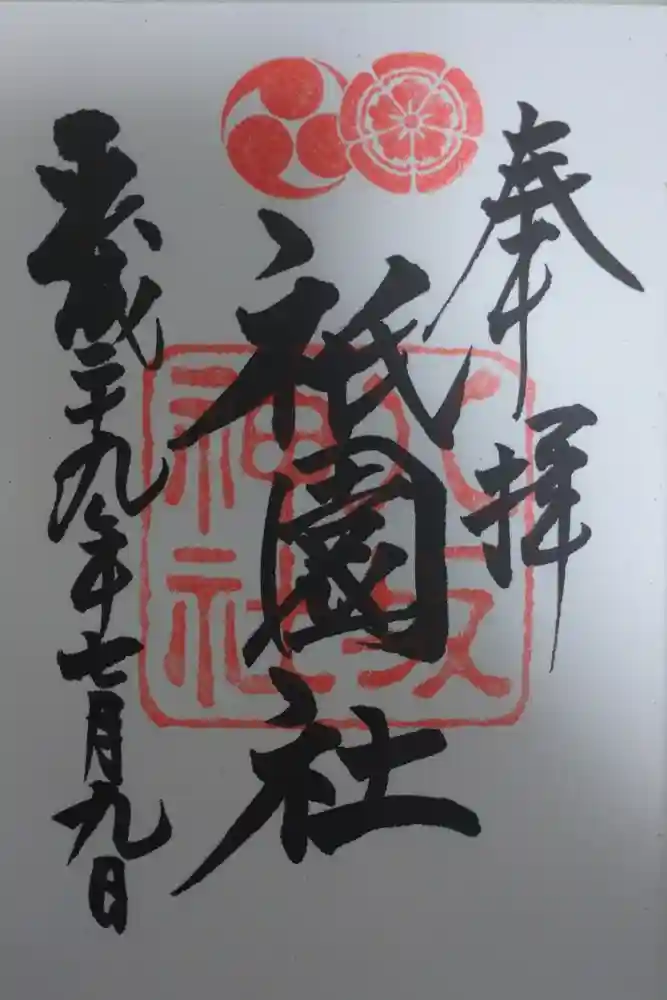 奉拝
祇園社
八坂神社
平成二十九年七月九日